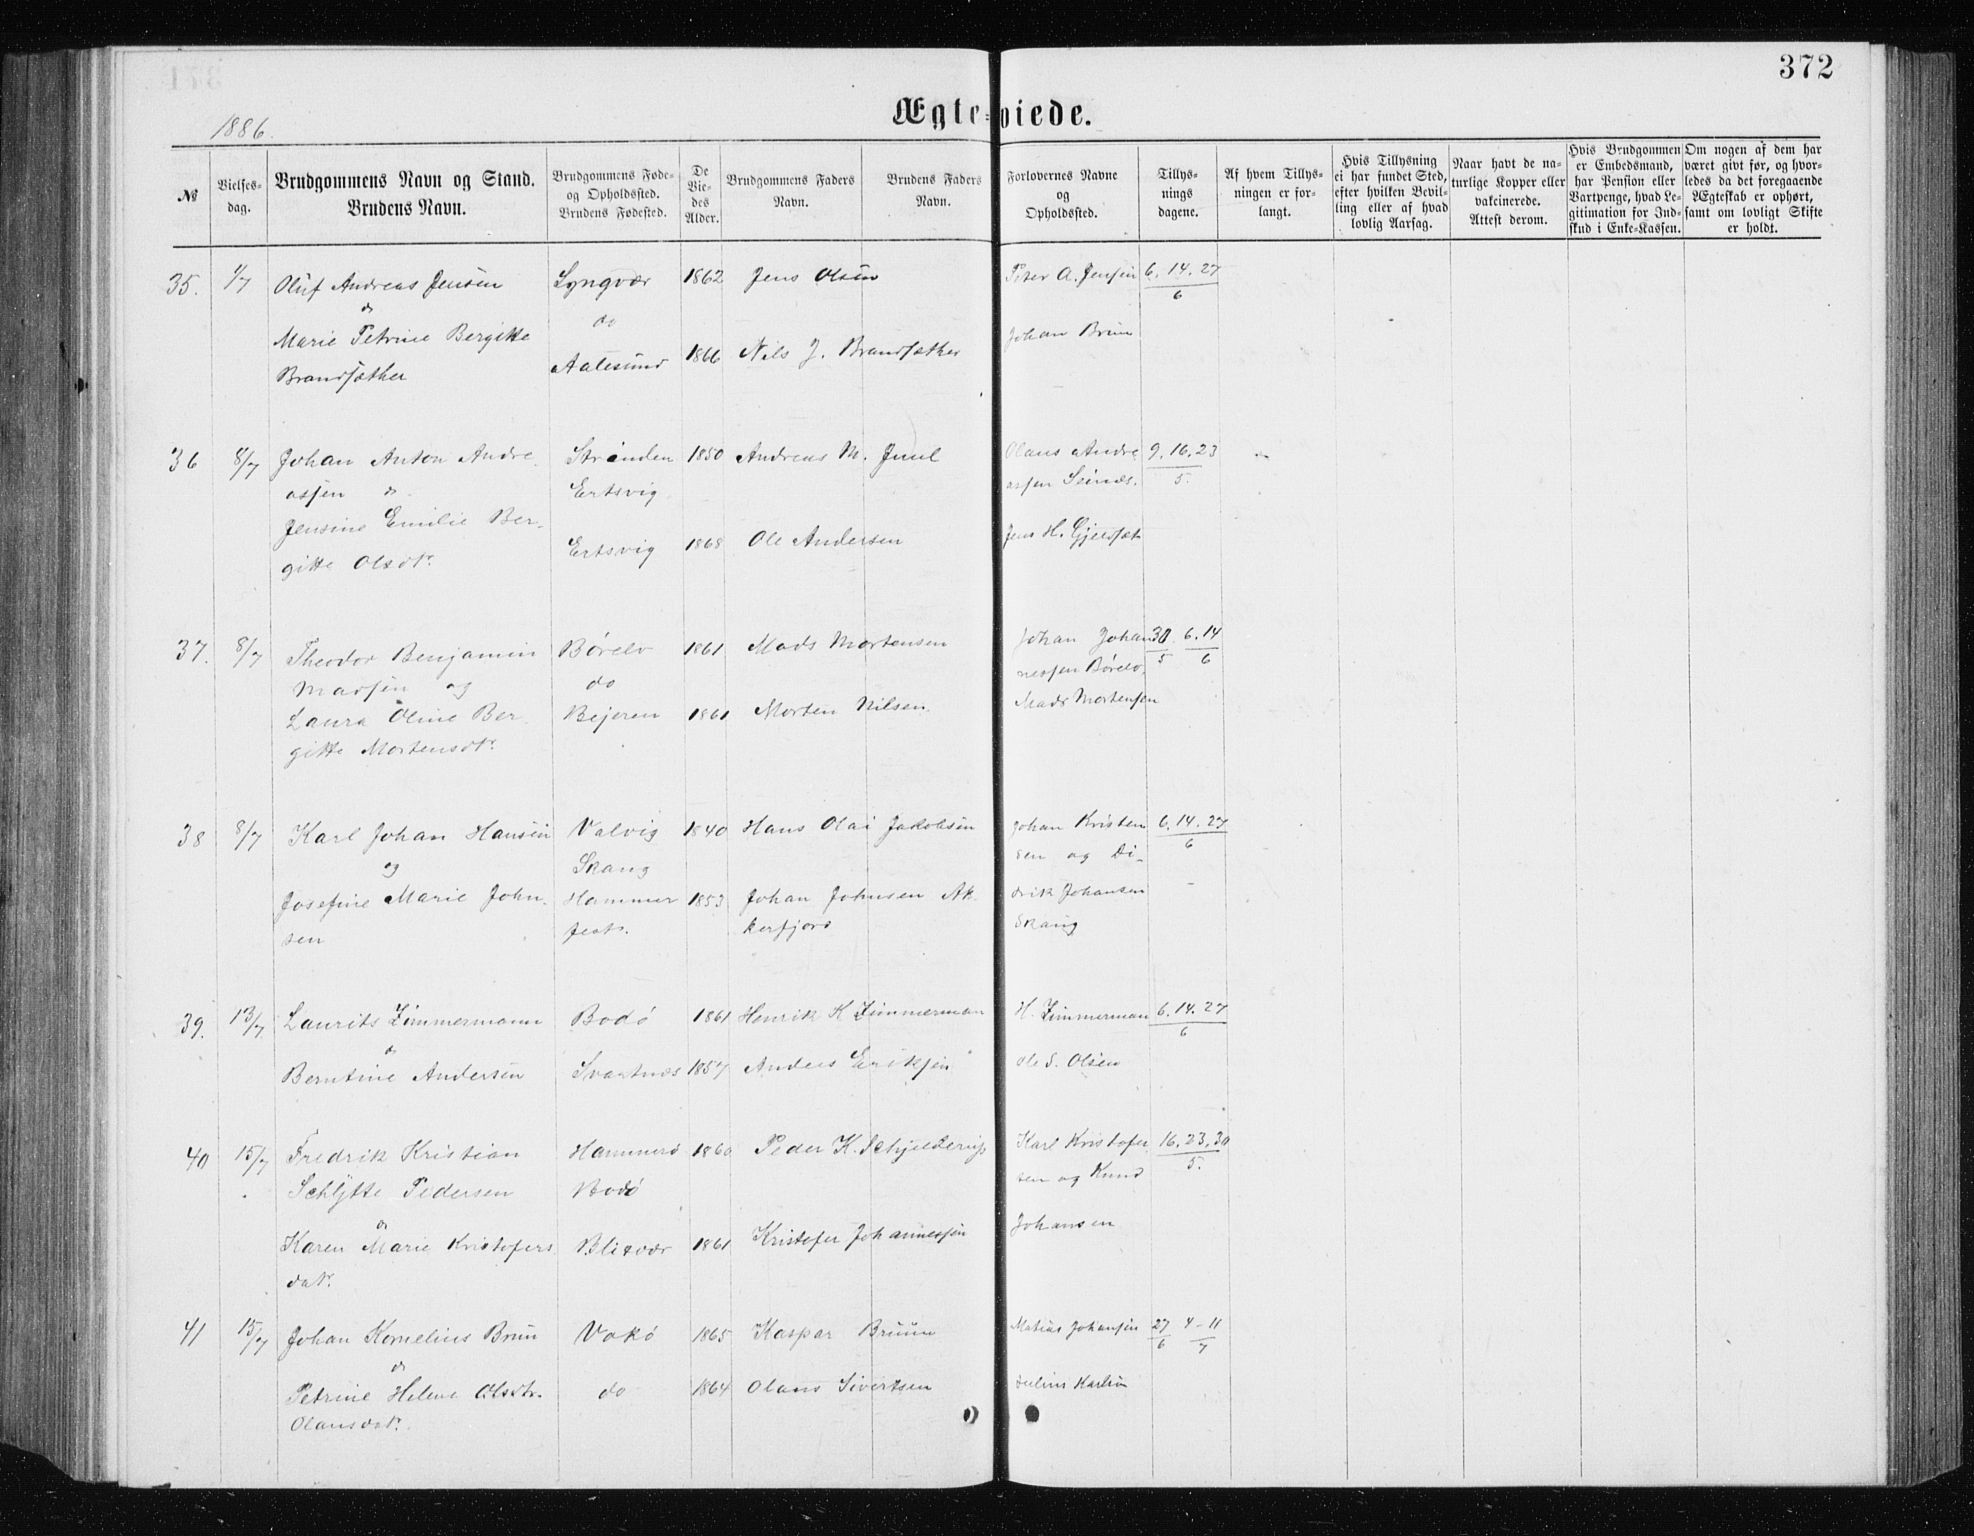 372
Ægteviede.
1886.
№
Vielses-
dag.
Brudgommens Navn og Stand.
Brudens Navn.
Brudgommens Føde-
og Opholdssted.
Brudens Fødested.
De
Vie-
des
Alder.
Brudgommens Faders
Navn.
Brudens Faders
Navn.
Forlovernes Navne
og
Opholdssted.
Tillys-
nings
dagene.
Af hvem Tillys-
ningen er for-
langt.
Hvis Tillysning
ei har fundet Sted,
efter hvilken Bevil-
ling eller af hvad
lovlig Aarsag.
Naar havt de na-
turlige Kopper eller
vakcinerede.
Attest derom.
Hvis Brudgommen
er Embedsmand,
har Pension eller
Vartpenge, hvad Le-
gitimation for Ind-
skud i Enke-Kassen.
Om nogen af dem har
været givt før, og hvor-
ledes da det foregaaende
Ægteskab er ophørt,
samt om lovligt Skifte
er holdt.
35. 1/7 Oluf Andreas Jensen Lyngvær 1862 Jens Olsen Peter A. Jensen 6. 14. 27
& do 6
Marie Petrine Bergitte Aalesund 1866 Nils J. Brandsæther Johan Brun
Brandsæther
36 8/7 Johan Anton Andre Stranden 1850 Andreas M. Juul Olaus Andre 9. 16. 23
assen & Ertsvig assen Seines. 5.
Jensine Emilie Ber- Ertsvig 1868 Ole Andersen Jens H. Gjelsæt
gitte Olsdtr.
37. 8/7 Theodor Benjamin Børelv 1861 Mads Mortensen Johan Johan 30. 6. 14
Madsen og do nessen Børelv. 5 6
Laura Oline Ber Bejeren 1861 Morten Nilsen Mads Mortensen
gitte Mortensdtr.
38 8/7 Karl Johan Hansen Valvig 1840 Hans Olai Jakobsen Johan Kristen 6. 14. 27
og Skaug sen og Di- 6
Josefine Marie John Hammer 1853 Johan Johnsen Ak drik Johansen
sen fest. kerfjord Skaug
39. 13/7 Laurits Zimmermann Bodø 1861 Henrik K Zimmerman H. Zimmerman 6. 14. 27
& 6
Berntine Andersen Svartnes 1857 Anders Eriksen Ole S. Olsen
40 15/7 Fredrik Kristian Hammerø 1860 Peder K. Schjelderup Karl Kristofer 16. 23. 30
Schlytte Pedersen Bodø sen og Knud 5.
& Johansen
Karen Marie Kristofers Blixvær 1861 Kristofer Johannessen
datr.
41 15/7 Johan Kornelius Brun Vokø 1865 Kaspar Bruun Matias Johansen 27 4-11
& 6 7
Petrine Helene Olsdtr. do 1864 Olaus Sivertsen Karlsen
Olausdatr.